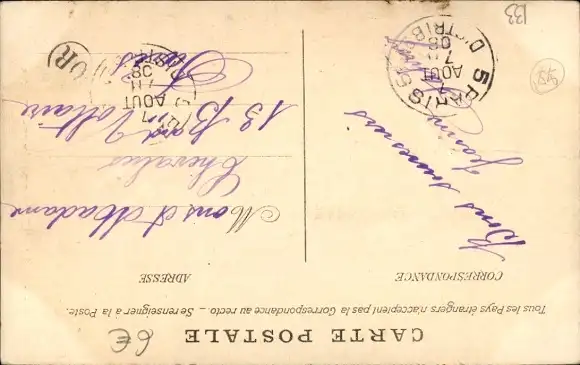 CARTE POSTALE
6€
Tous les Pays étrangers n'acceptent pas la Correspondance au recto. — Se renseigner à la Poste.
CORRESPONDANCE
ADRESSE
Bons souvenirs
Mons et Madame
Chevalier
13 Bard Voltaire
PARIS
7
AOUT
7 H
08
DISTRIB
5 PARIS 5
7
AOUT
7 H
08
DISTRIB